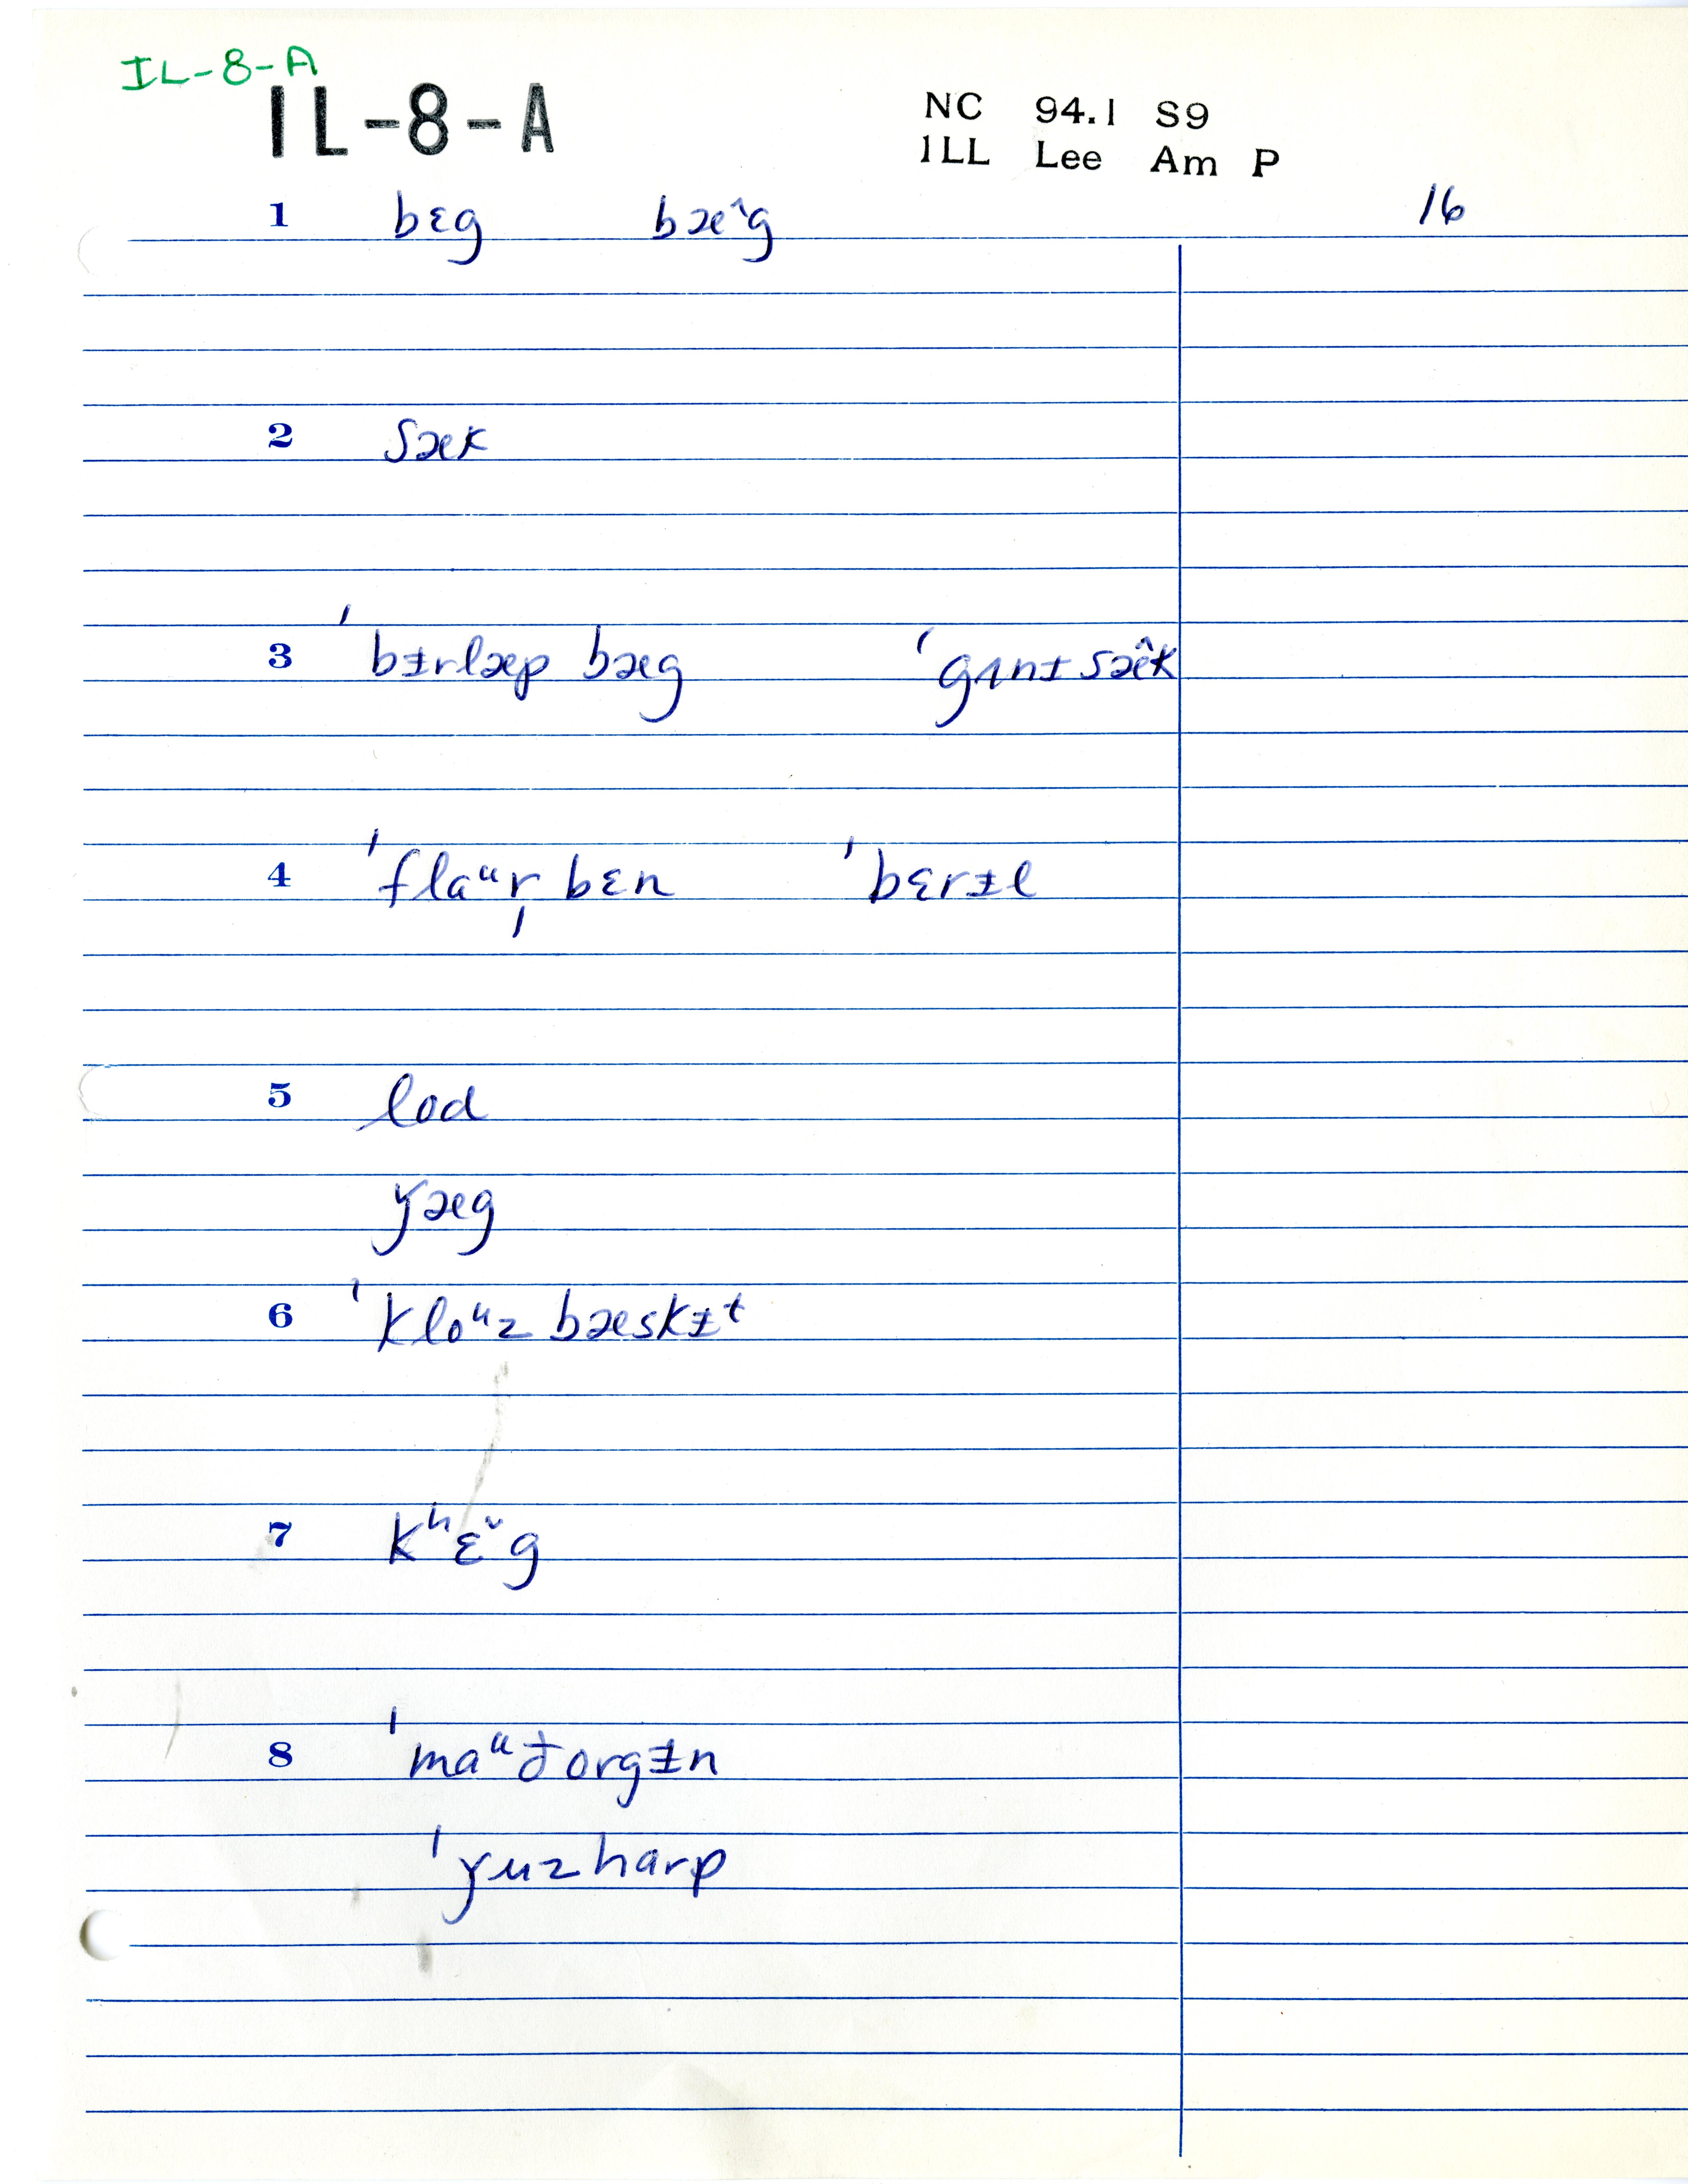 IL-8-A
IL-8-A
NC 94.1 S9
ILL Lee Am P
16
1 bɛg bæ^g
2 sæk
3 ˈbɪ̵rlæp bæg ˈgʌnɪ sæ̂k
4 ˈflaᵘr̩ bɛn ˈbɛrɪ̵l
5 lod
yæg
6 ˈkloᵘz bæskɪ̵t
7 kʰɛˇg
8 ˈmaᵘđorgɪ̵n
ˈyuzharp